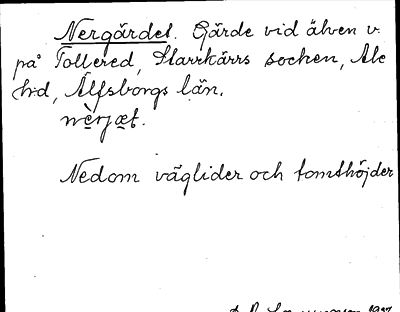 Nergärdet. Gärde vid älven v.
på Tollered, Starrkärrs socken, Ale
h:d, Älfsborgs län.
nèrjæt.
Nedom väglider och tomthöjder